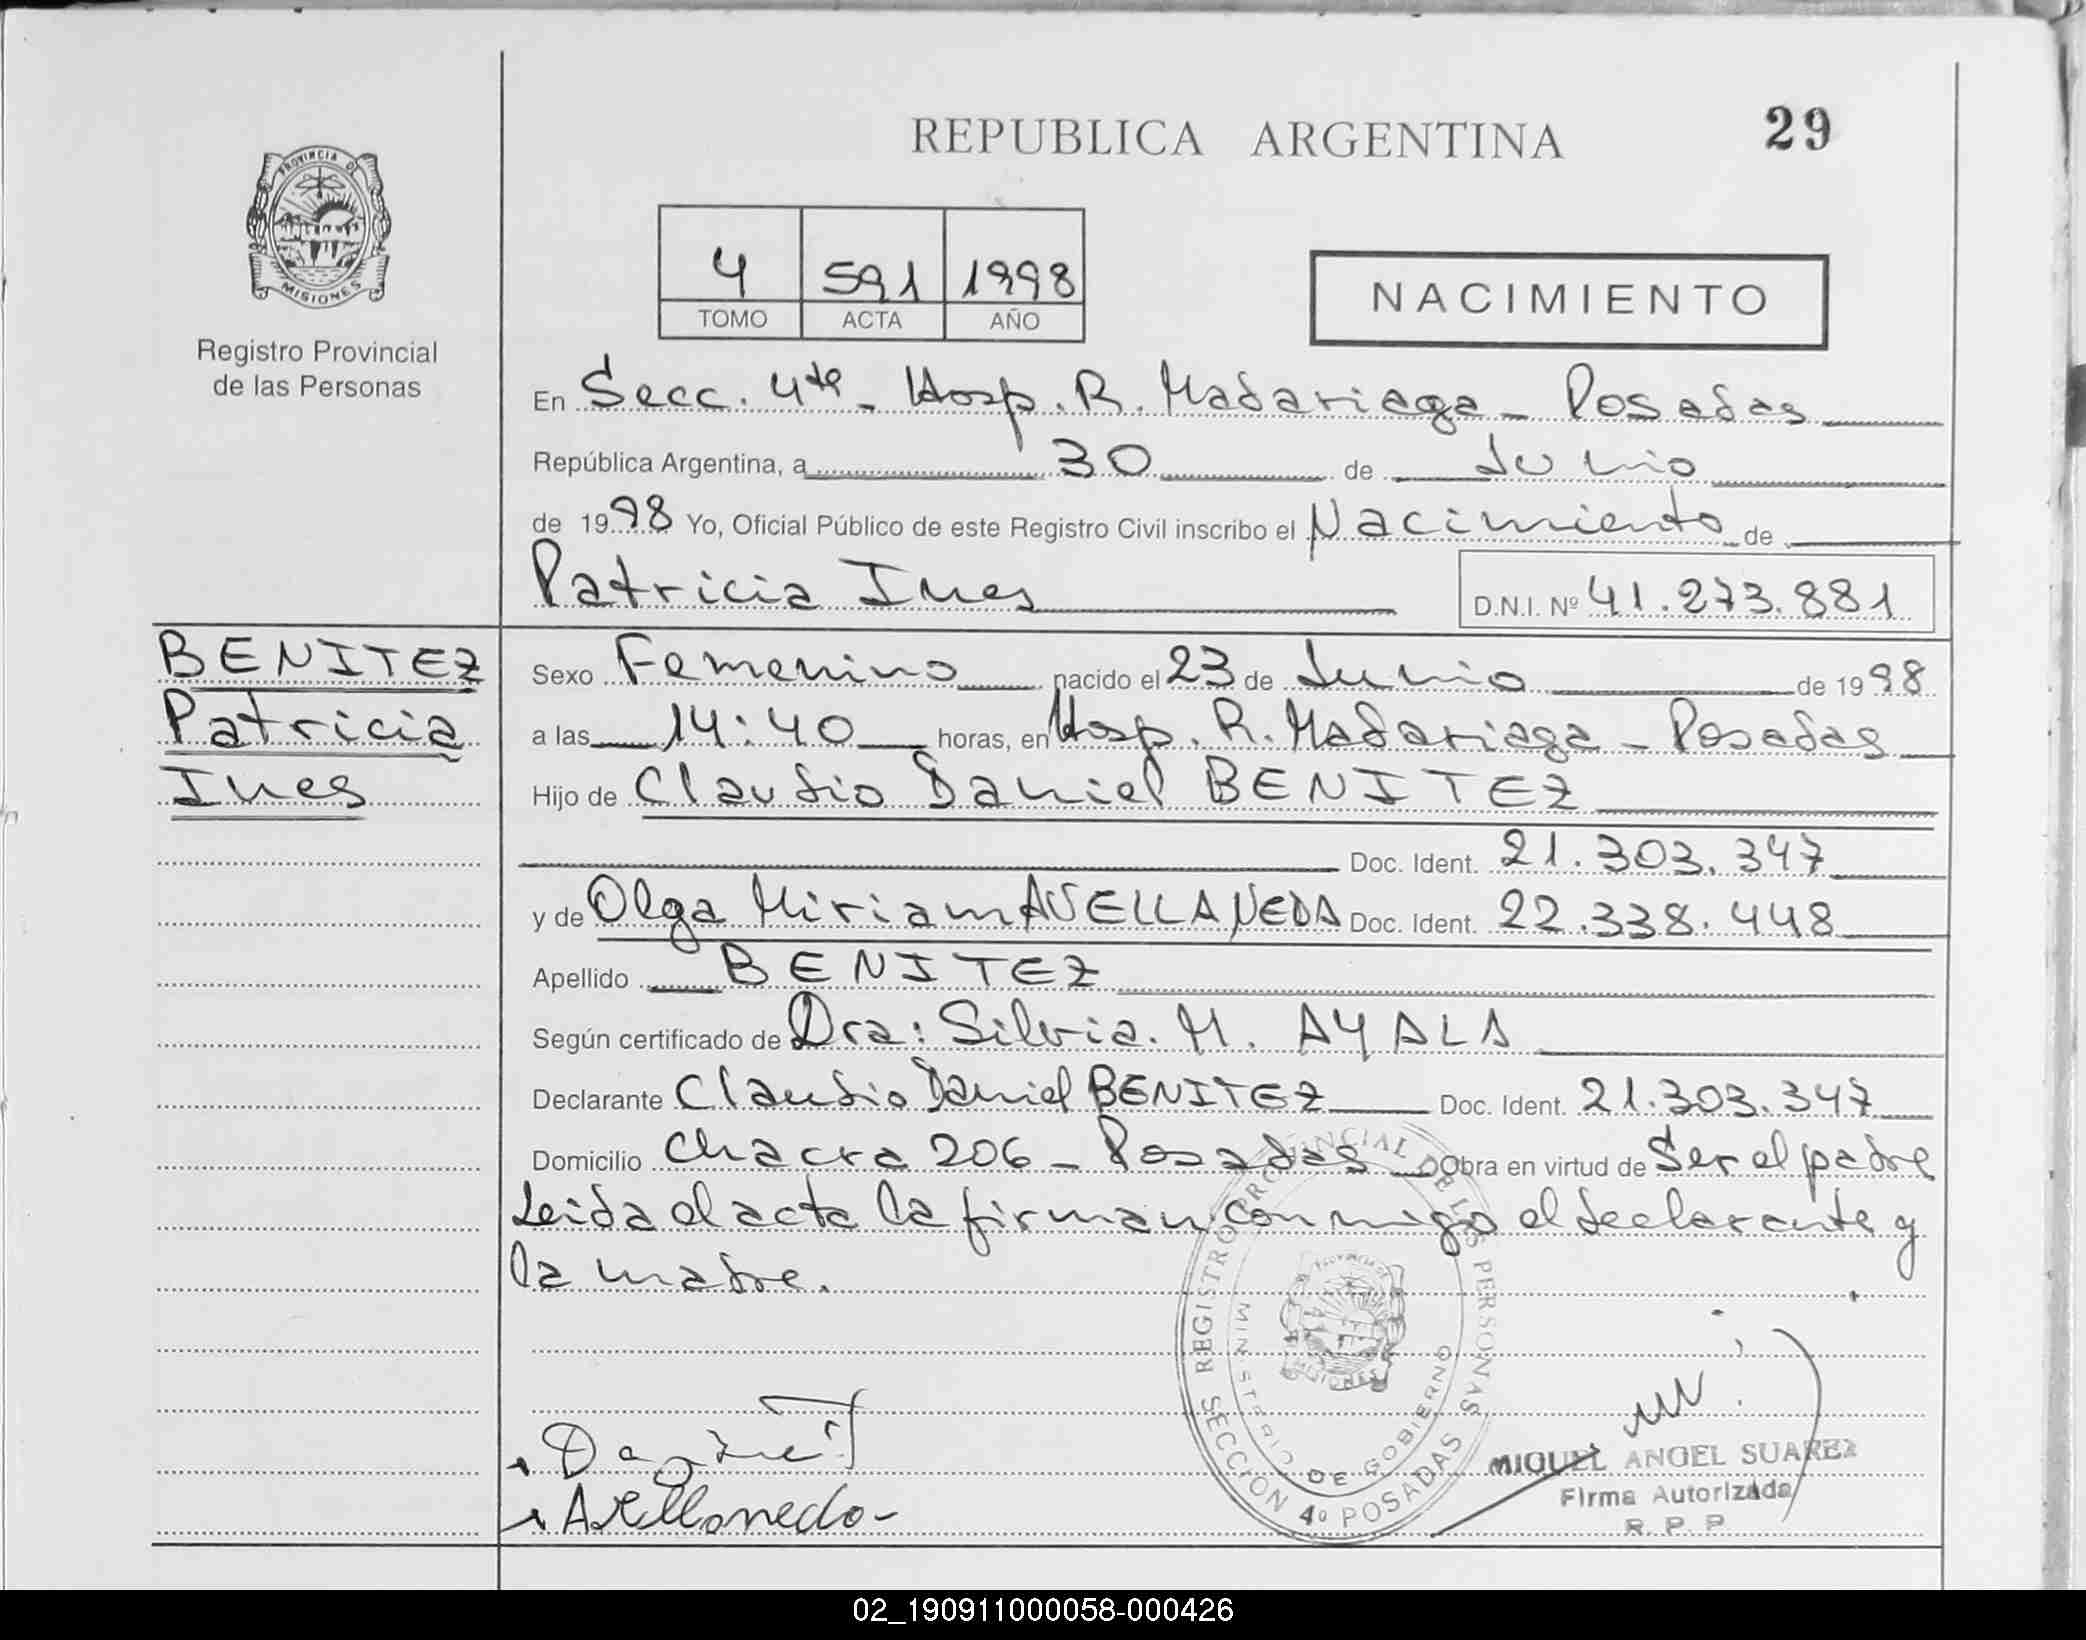 REPUBLICA ARGENTINA
29
PROVINCIA DE
MISIONES
Registro Provincial
de las Personas
4 591 1998
TOMO ACTA AÑO
NACIMIENTO
En Secc. 4ta - Hosp. R. Madariaga - Posadas
República Argentina, a 30 de Junio
de 1998 Yo, Oficial Público de este Registro Civil inscribo el Nacimiento de
Patricia Ines D.N.I. Nº 41.273.881
BENITEZ
Patricia
Ines
Sexo Femenino nacido el 23 de Junio de 1998
a las 14:40 horas, en Hosp. R. Madariaga - Posadas
Hijo de Claudio Daniel BENITEZ
Doc. Ident. 21.303.347
y de Olga Miriam AVELLANEDA Doc. Ident. 22.338.448
Apellido BENITEZ
Según certificado de Dra: Silvia. M. AYALA
Declarante Claudio Daniel BENITEZ Doc. Ident. 21.303.347
Domicilio Chacra 206 - Posadas Obra en virtud de Ser el padre
Leida el acta la firman conmigo el declarante y
la madre.
REGISTRO PROVINCIAL DE LAS PERSONAS
MINISTERIO DE GOBIERNO
PROVINCIA DE
MISIONES
SECCION 4º POSADAS
Avellaneda -
MIGUEL ANGEL SUAREZ
Firma Autorizada
R. P. P
02_190911000058-000426